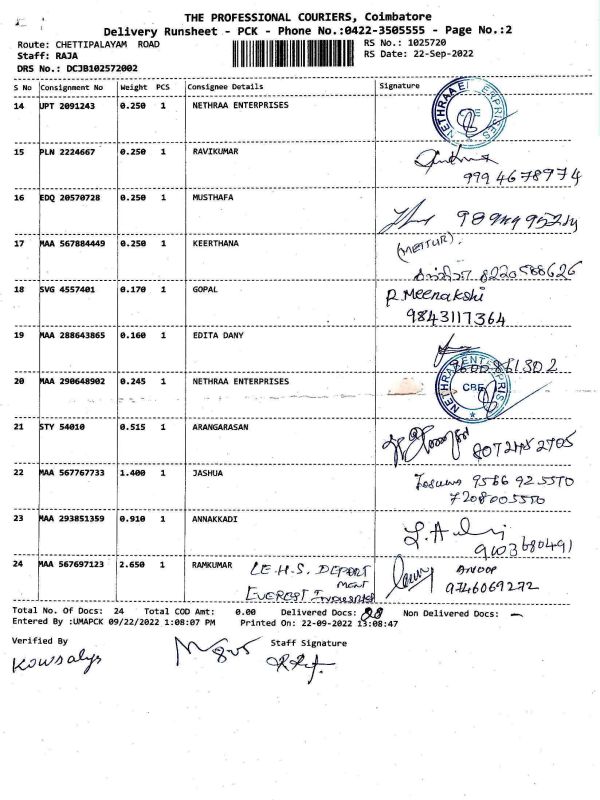 THE PROFESSIONAL COURIERS, Coimbatore
Delivery Runsheet - PCK - Phone No.:0422-3505555 - Page No.:2
Route: CHETTIPALAYAM ROAD
RS No.: 1025720
Staff: RAJA
RS Date: 22-Sep-2022
DRS No.: DCJB102572002
S No Consignment No Weight PCS Consignee Details Signature
14 UPT 2091243 0.250 1 NETHRAA ENTERPRISES
15 PLN 2224667 0.250 1 RAVIKUMAR
9994678974
16 EDQ 20570728 0.250 1 MUSTHAFA
17 MAA 567884449 0.250 1 KEERTHANA
(METTUR)
8220588626
18 SVG 4557401 0.170 1 GOPAL
P. Meenakshi
9843117364
19 MAA 288643865 0.160 1 EDITA DANY
20 MAA 290648902 0.245 1 NETHRAA ENTERPRISES
CBE
21 STY 54010 0.515 1 ARANGARASAN
22 MAA 567767733 1.400 1 JASHUA
9566 92 5570
7208005550
23 MAA 293851359 0.910 1 ANNAKKADI
24 MAA 567697123 2.650 1 RAMKUMAR
L.E.H.S. DEPORT
MENT
EVEREST
ANOOP
9746069272
Total No. Of Docs: 24 Total COD Amt: 0.00 Delivered Docs: Non Delivered Docs: -
Entered By :UMAPCK 09/22/2022 1:08:07 PM Printed On: 22-09-2022 13:08:47
Verified By
Staff Signature
Kowsalya